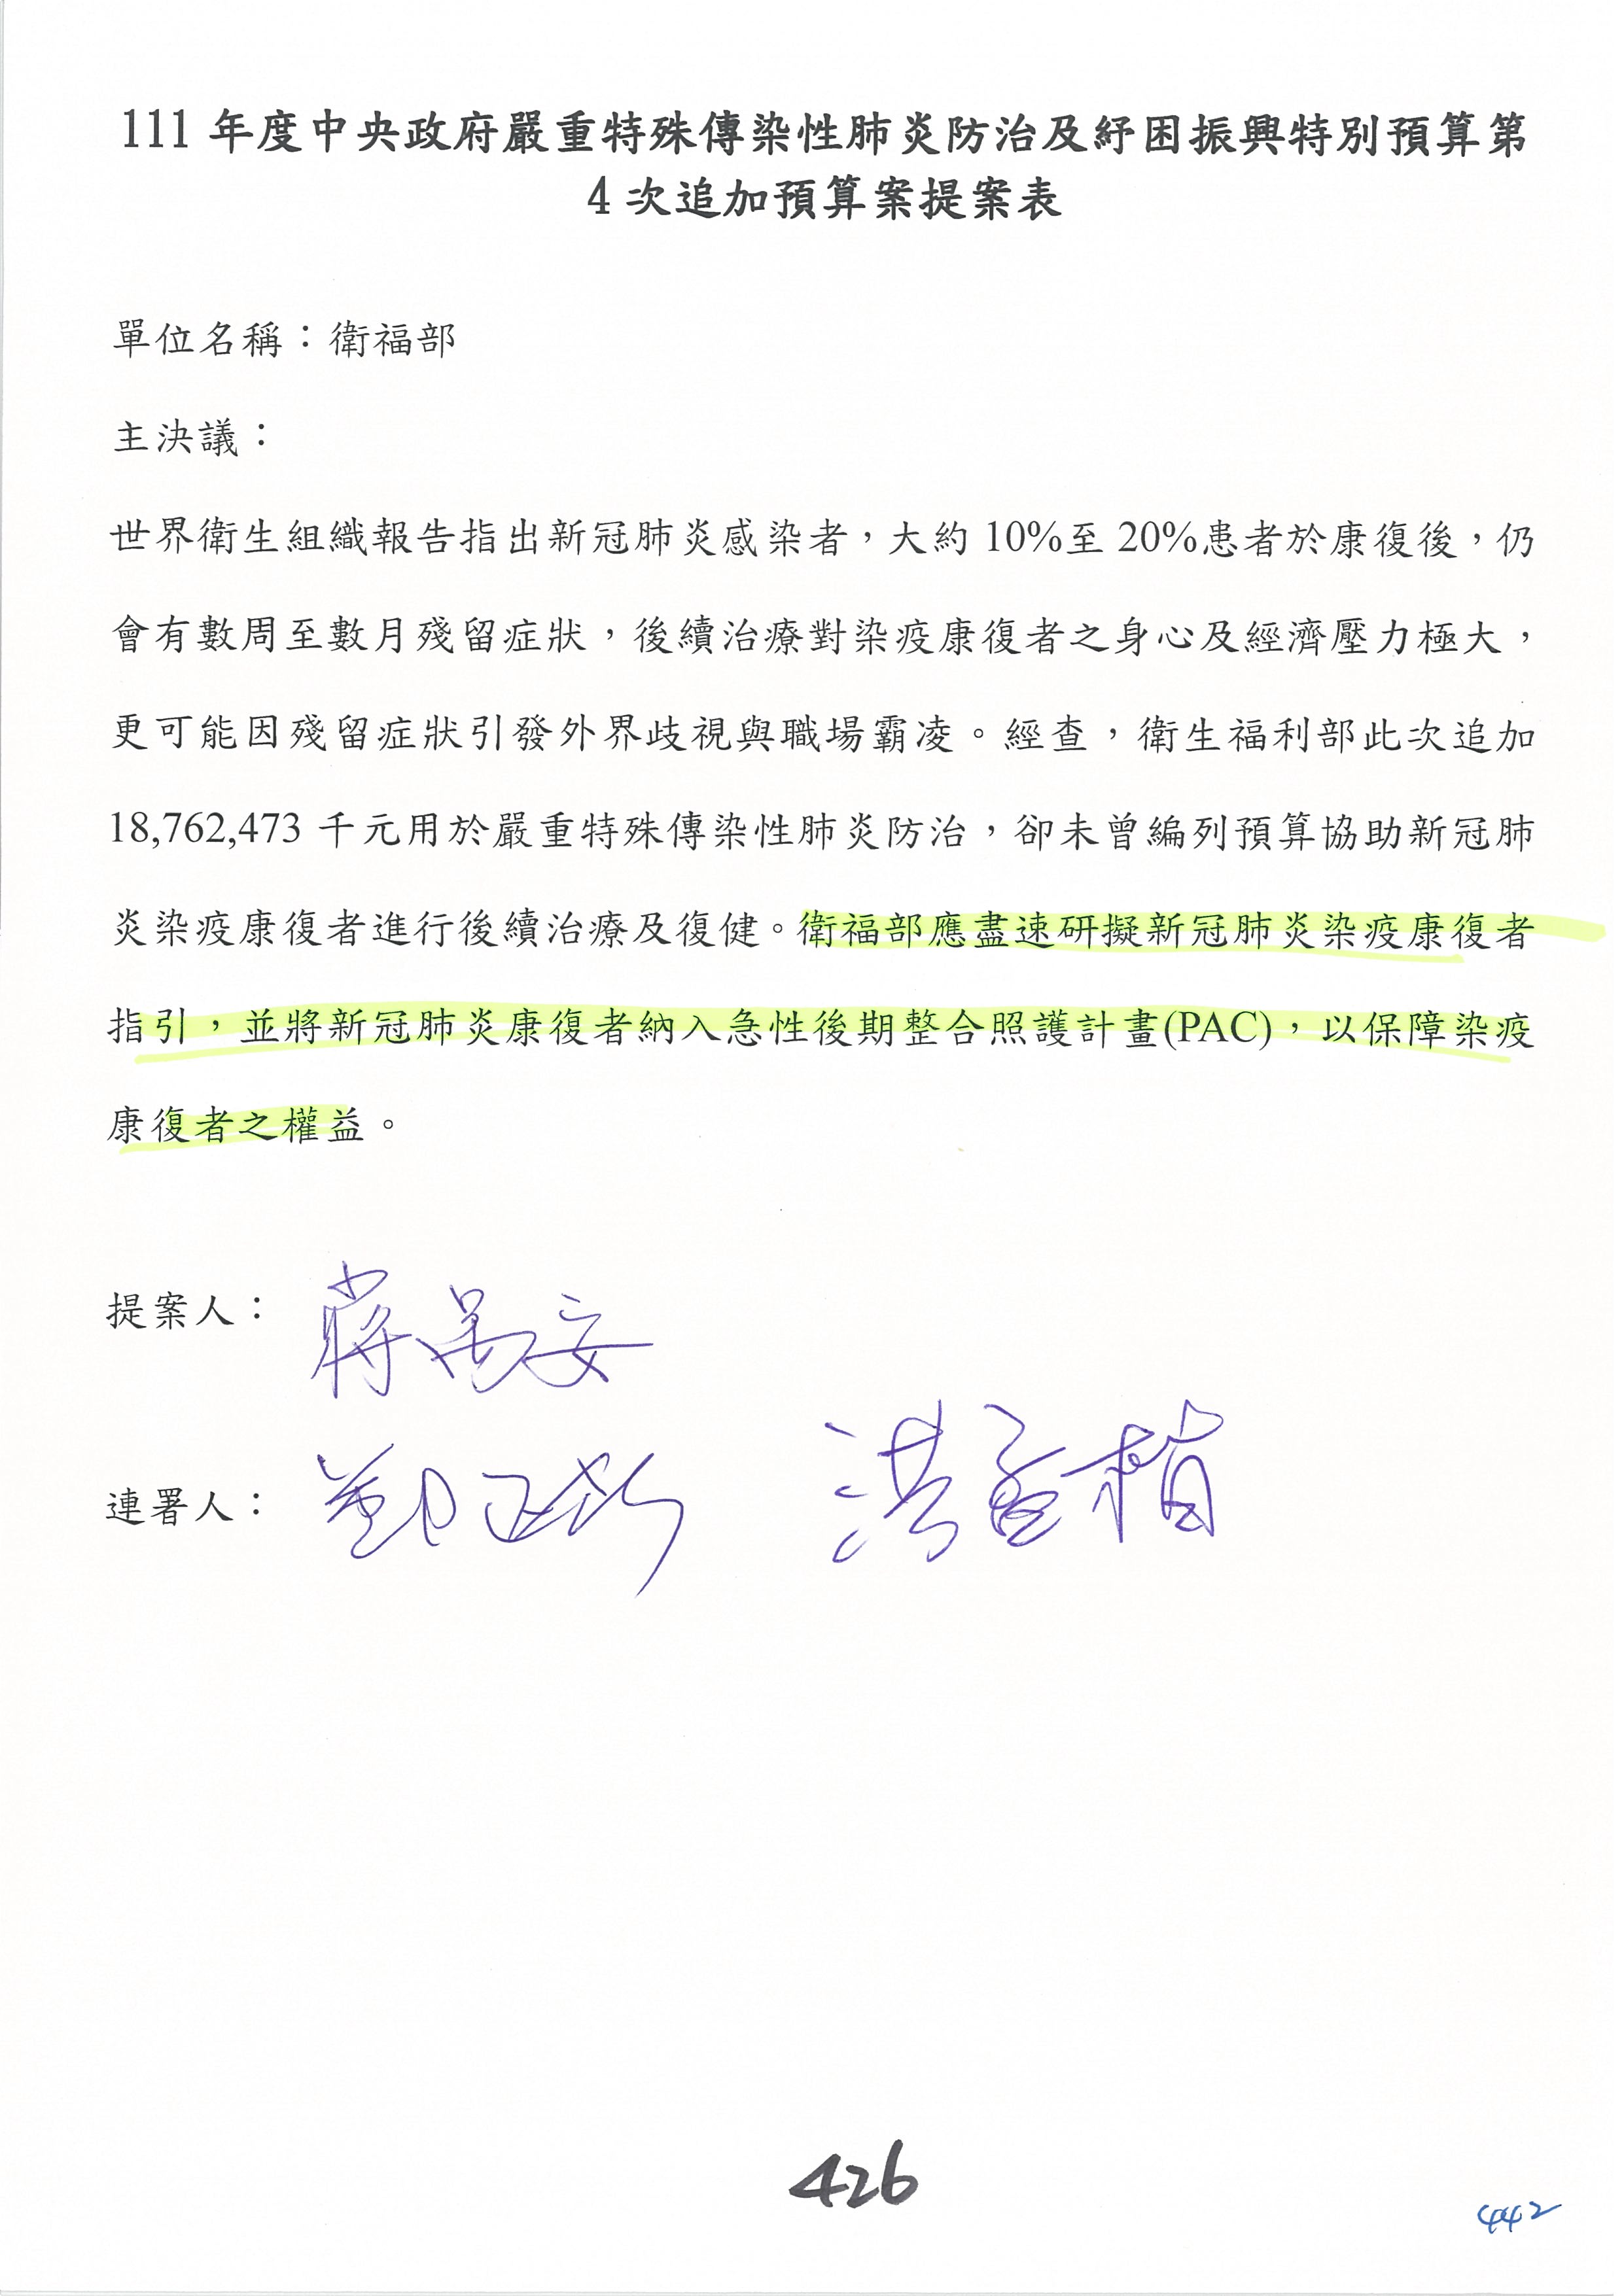 111 年度中央政府嚴重特殊傳染性肺炎防治及紓困振興特別預算第
4 次追加預算案提案表
單位名稱：衛福部
主決議：
世界衛生組織報告指出新冠肺炎感染者，大約 10%至 20%患者於康復後，仍
會有數周至數月殘留症狀，後續治療對染疫康復者之身心及經濟壓力極大，
更可能因殘留症狀引發外界歧視與職場霸凌。經查，衛生福利部此次追加
18,762,473 千元用於嚴重特殊傳染性肺炎防治，卻未曾編列預算協助新冠肺
炎染疫康復者進行後續治療及復健。衛福部應盡速研擬新冠肺炎染疫康復者
指引，並將新冠肺炎康復者納入急性後期整合照護計畫(PAC)，以保障染疫
康復者之權益。
提案人： 蔣萬安
連署人： 鄭正鈐 洪孟楷
426
442